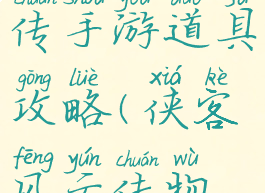 chuán shǒu yóu dào jù
传手游道具
gōng lüè xiá kè
攻略(侠客
fēng yún chuán wù
风云传物